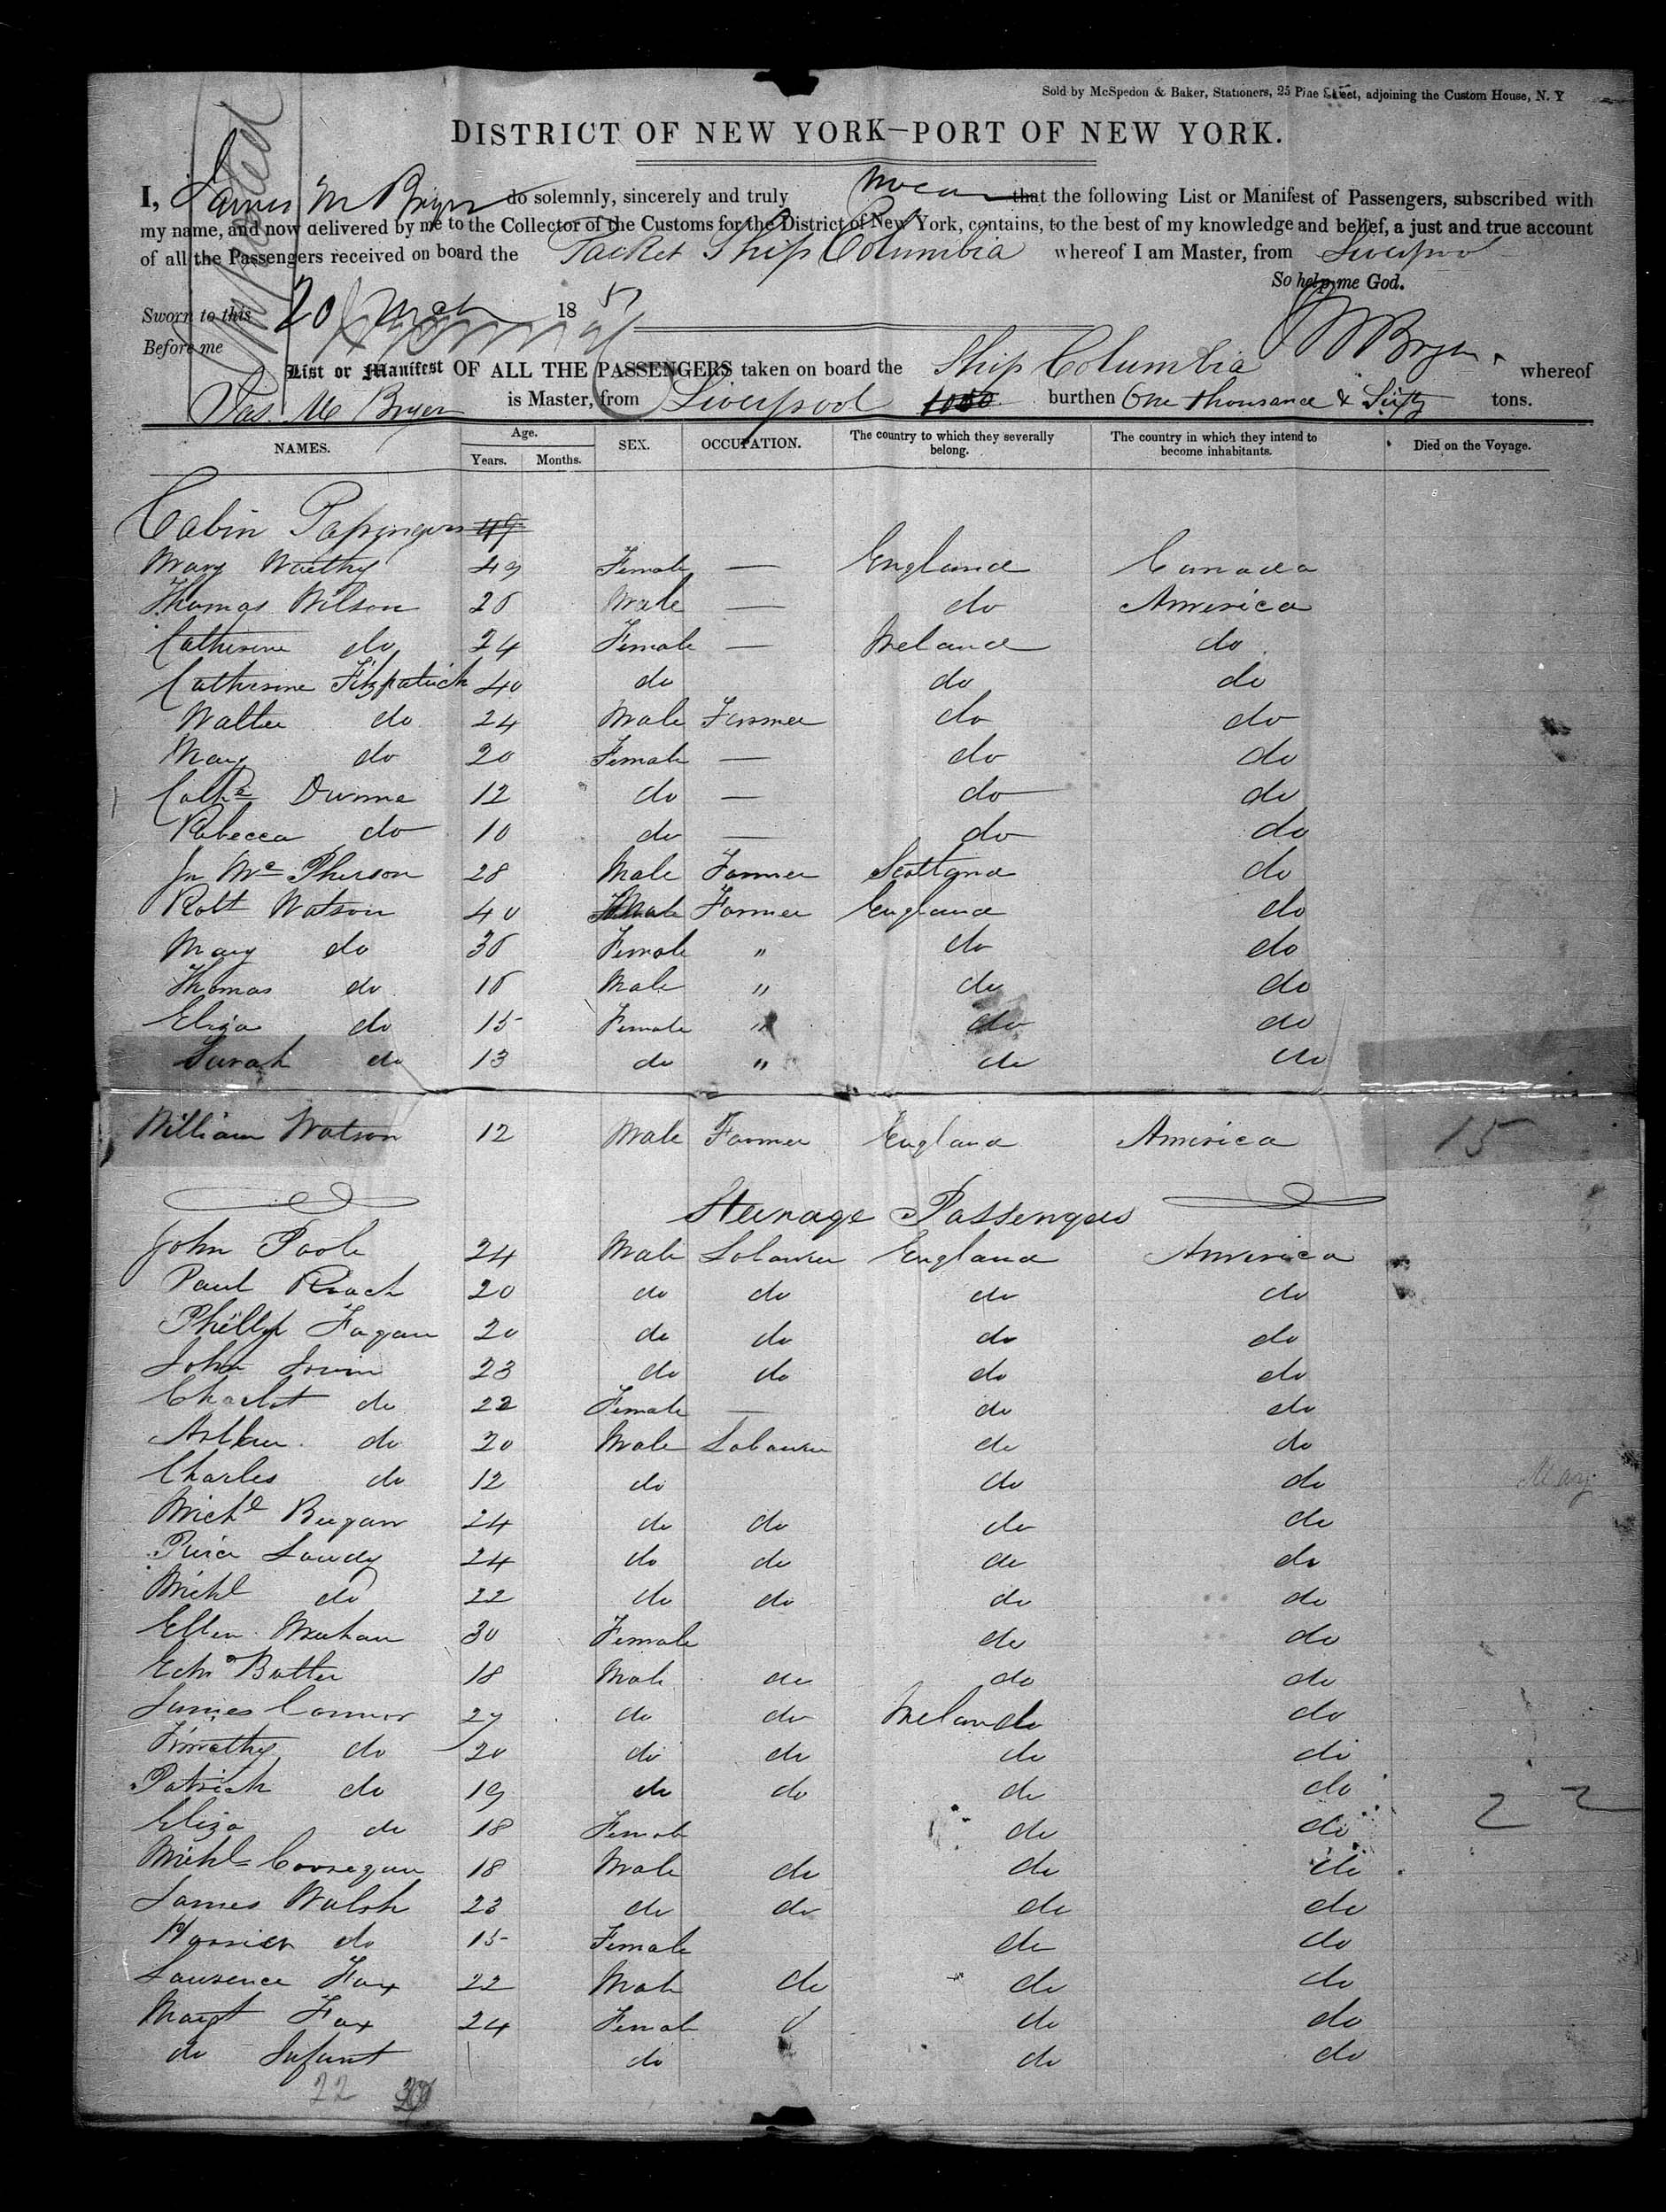 Sold by McSpedon & Baker, Stationers, 25 Pine Street, adjoining the Custom House, N. Y
DISTRICT OF NEW YORK—PORT OF NEW YORK.
I, James M Bryer do solemnly, sincerely and truly swear that the following List or Manifest of Passengers, subscribed with
my name, and now delivered by me to the Collector of the Customs for the District of New York, contains, to the best of my knowledge and belief, a just and true account
of all the Passengers received on board the Packet Ship Columbia whereof I am Master, from Liverpool
So help me God.
Sworn to this 20 Mch 185
Before me
J M Bryer
List or Manifest OF ALL THE PASSENGERS taken on board the Ship Columbia whereof
Jas. Mc Bryer is Master, from Liverpool 1050 burthen One thousand & Sixty tons.
NAMES. Age. Years. Months. SEX. OCCUPATION. The country to which they severally belong. The country in which they intend to become inhabitants. Died on the Voyage.
Cabin Passengers 49
Mary 49 Female — England Canada
Thomas Wilson 26 Male — do America
Catherine do 24 Female — Ireland do
Catherine Fitzpatrick 40 do do do
Walter do 24 Male Farmer do do
Mary do 20 Female — do do
Cathe Dunne 12 do — do do
Rebecca do 10 do — do do
Jn McPherson 28 Male Farmer Scotland do
Robt Watson 40 Male Farmer England do
Mary do 36 Female " do do
Thomas do 16 Male " do do
Eliza do 15 Female " do do
Sarah do 13 do " do do
William Watson 12 Male Farmer England America 15
Steerage Passengers
John Poole 24 Male Labourer England America
Paul Roach 20 do do do do
Phillip Fagan 20 do do do do
John Irwin 23 do do do do
Charlot do 22 Female — do do
Arthur do 20 Male Labourer do do
Charles do 12 do do do
Michl Regan 24 do do do do
Pierce Landy 24 do do do do
Michl do 22 do do do do
Ellen Meehan 30 Female do do
Edm Butler 18 Male do do do
James Connor 27 do do Ireland do
Timothy do 20 do do do do
Patrick do 19 do do do do
Eliza do 18 Female do do 22
Michl Corregan 18 Male do do do
James Walsh 23 do do do do
do 15 Female do do
Laurence Fax 22 Male do do do
Margt Fax 24 Female do do
do Infant do do do
22